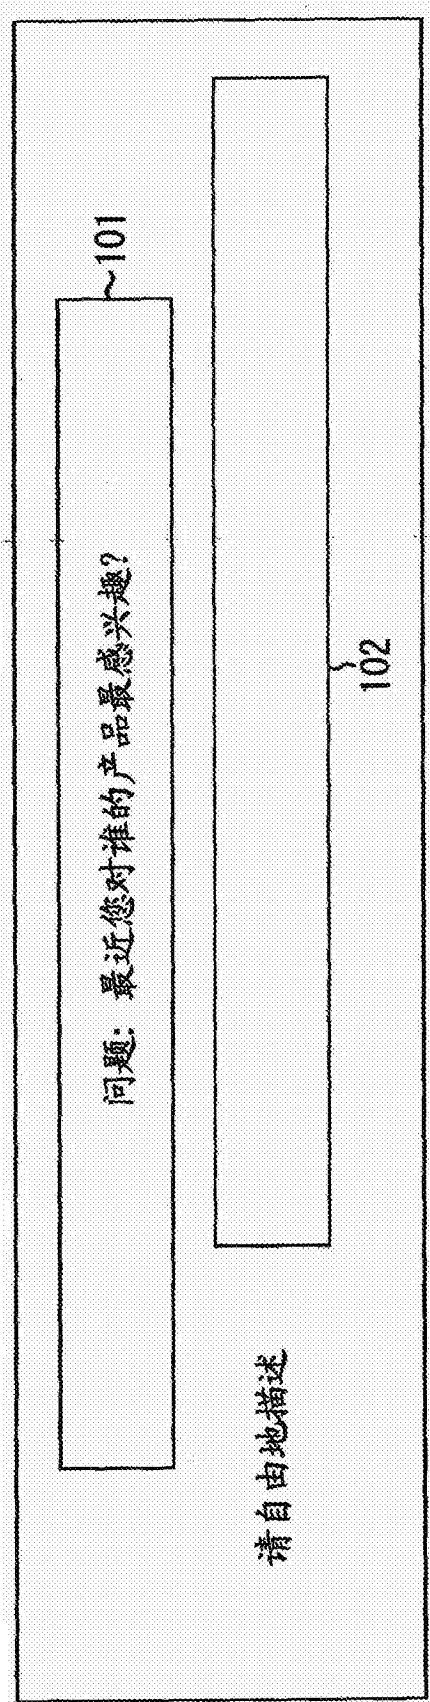 问题：最近您对谁的产品最感兴趣？
101
请自由地描述
102